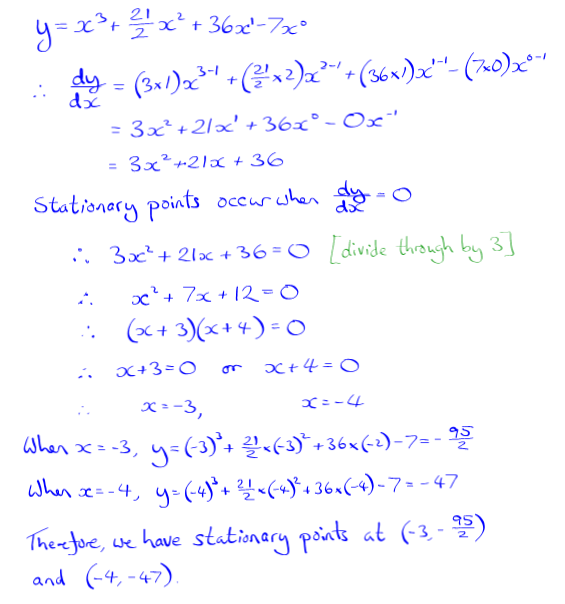 y = x³ + 21/2 x² + 36x¹ - 7x⁰
∴ dy/dx = (3×1)x³⁻¹ + (21/2 × 2)x²⁻¹ + (36×1)x¹⁻¹ - (7×0)x⁰⁻¹
= 3x² + 21x¹ + 36x⁰ - 0x⁻¹
= 3x² + 21x + 36
Stationary points occur when dy/dx = 0
∴ 3x² + 21x + 36 = 0 [divide through by 3]
∴ x² + 7x + 12 = 0
∴ (x + 3)(x + 4) = 0
∴ x + 3 = 0 or x + 4 = 0
∴ x = -3, x = -4
When x = -3, y = (-3)³ + 21/2 × (-3)² + 36 × (-2) - 7 = - 95/2
When x = -4, y = (-4)³ + 21/2 × (-4)² + 36 × (-4) - 7 = - 47
Therefore, we have stationary points at (-3, - 95/2)
and (-4, -47).